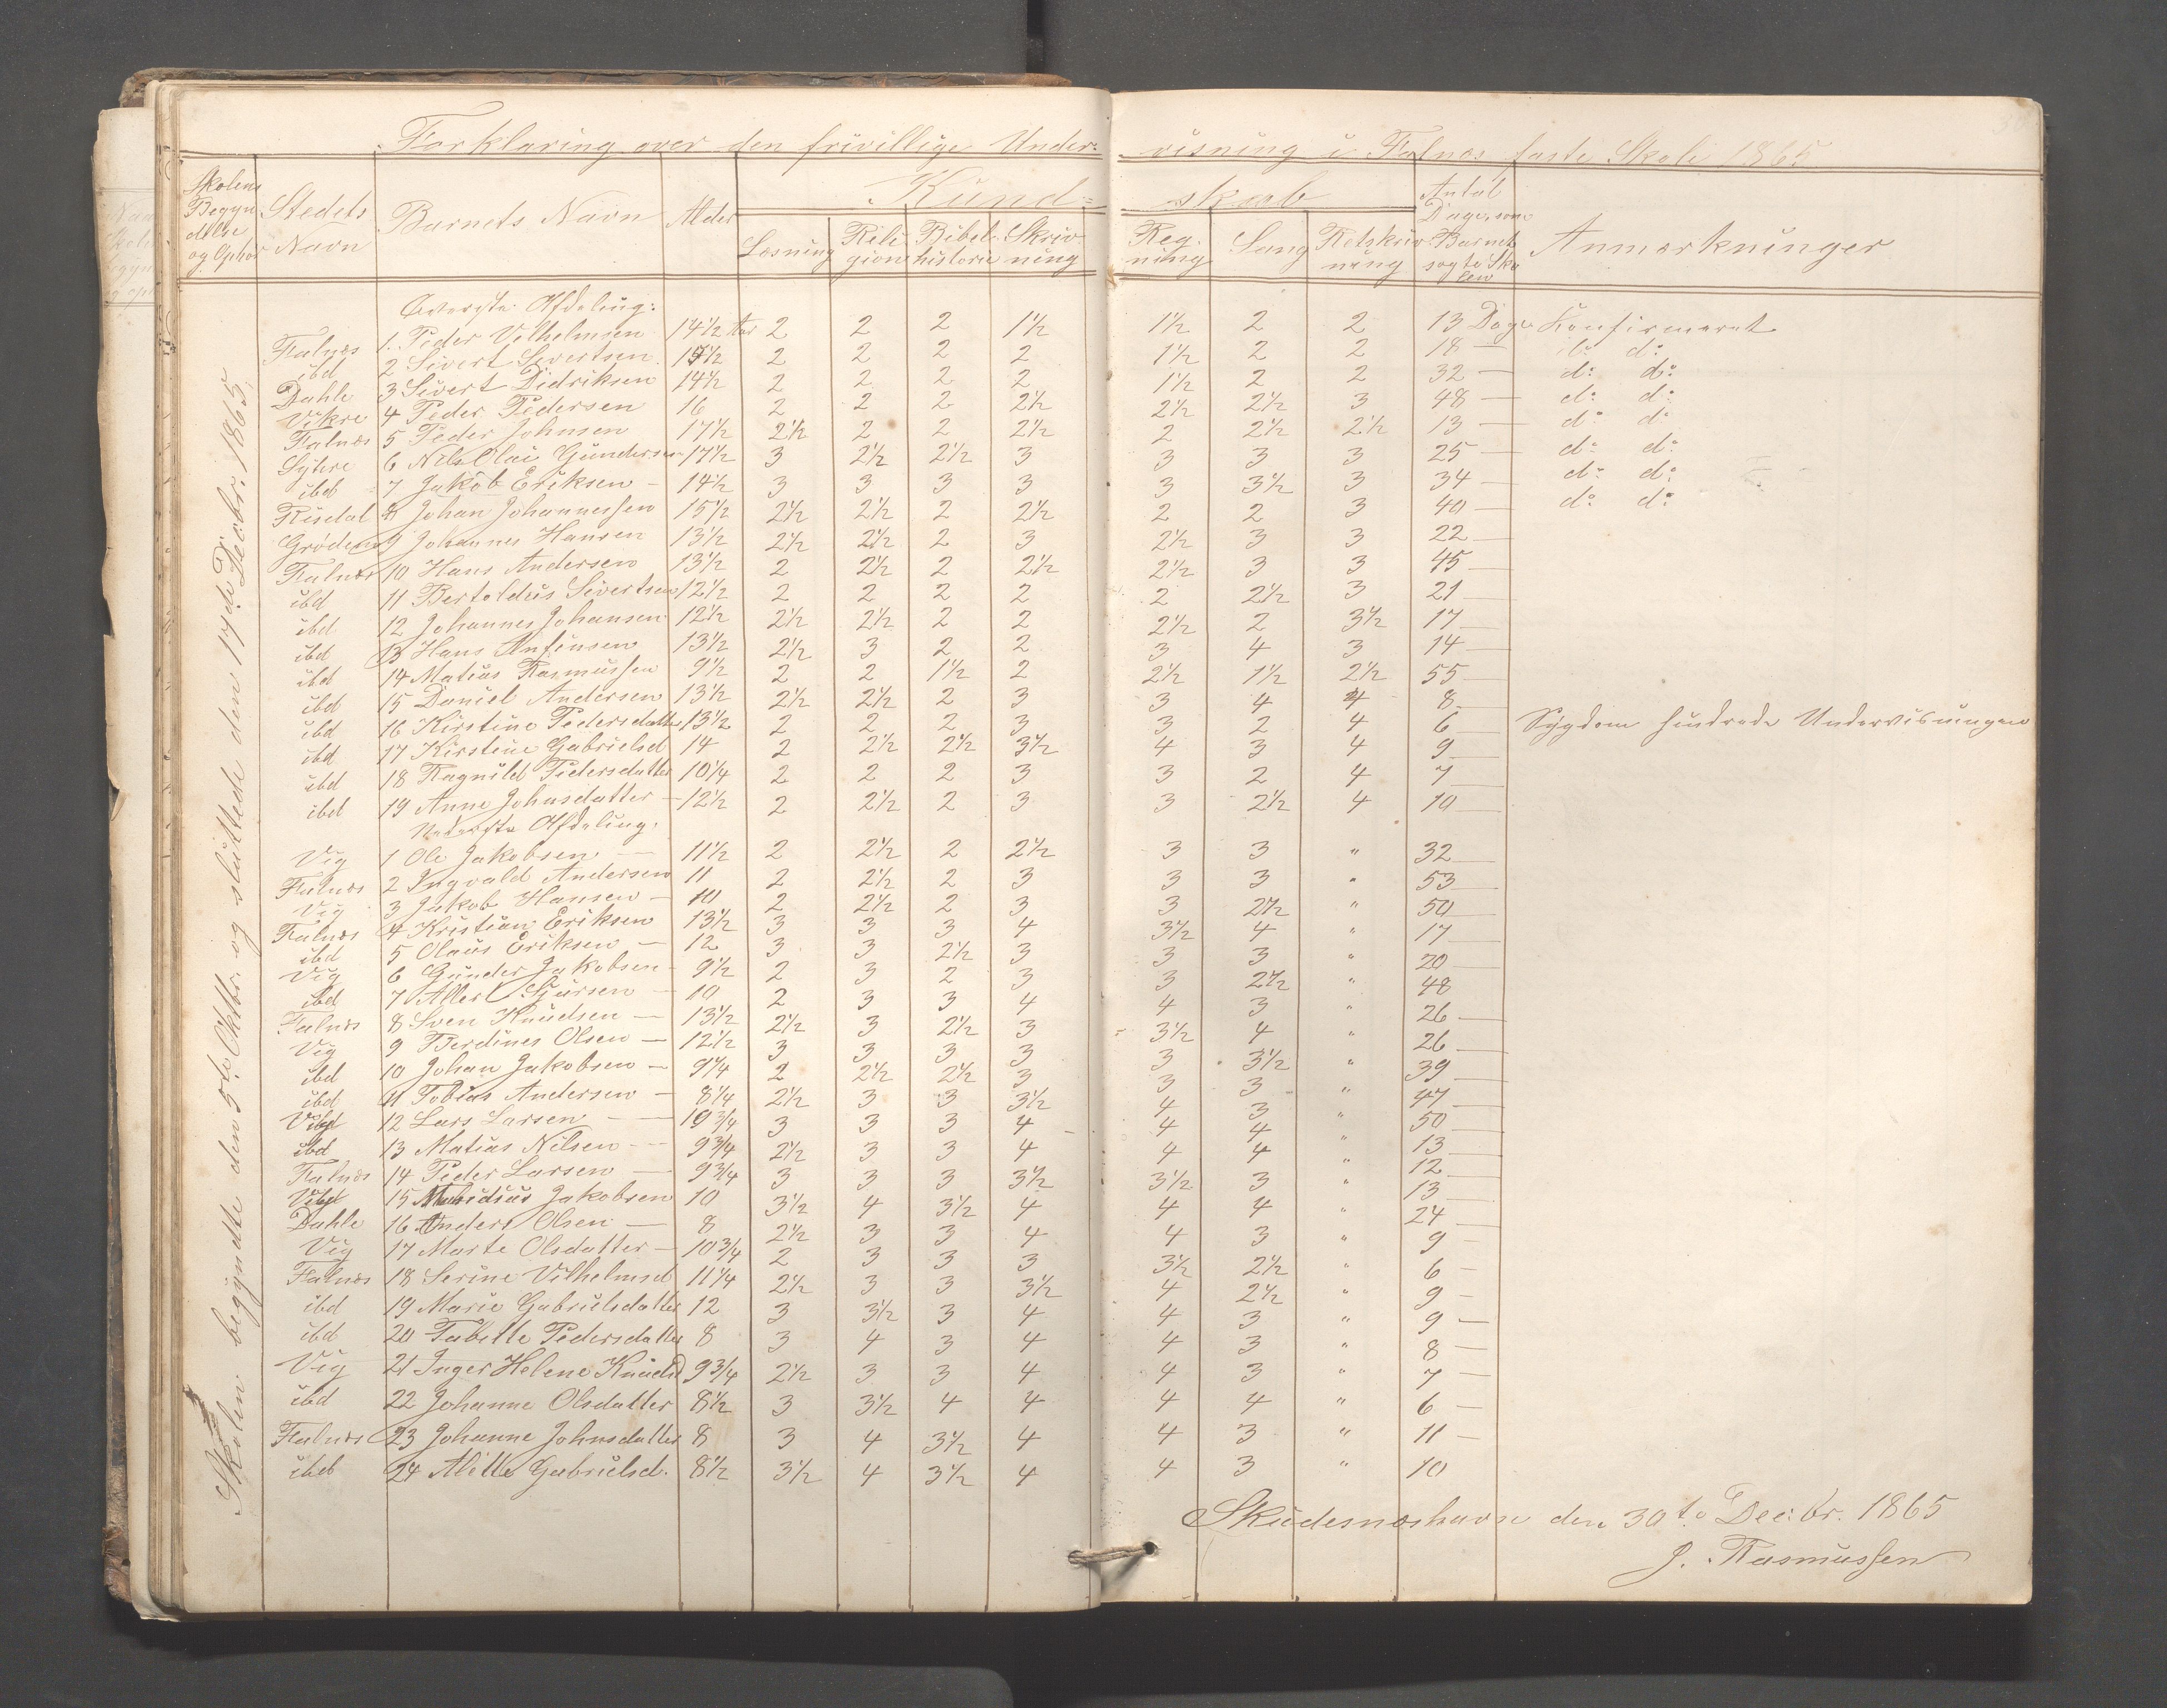 Forklaring over den frivillige Under- visning i Falnæs faste Skole 1865
Skolens Begyndelse og Ophør | Stedets Navn | Barnets Navn | Alder | Kund- skab | Antal Dage, som Barnet søgte Skolen | Anmærkninger
Læsning | Religion | Bibelhistorie | Skrivning | Regning | Sang | Retskrivning
Skolen begyndte den 5te Oktbr. og sluttede den 17de Decbr. 1865.
Øverste Afdeling:
Falnæs 1. Peder Vilhelmsen 14½ Aar 2 2 2 1½ 1½ 2 2 13 Dage Konfirmeret
ibd 2 Sivert Sivertsen 15½ 2 2 2 2 1½ 2 2 18 — do do
Dahle 3 Sivert Didriksen 14½ 2 2 2 2 1½ 2 2 32 — do do
Vikre 4 Peder Pedersen 16 2 2 2 2½ 2½ 2½ 3 48 — do do
Falnæs 5 Peder Johnsen 17½ 2½ 2 2 2½ 2 2½ 2½ 13 — do do
Sytre 6 Nils Olai Gundersen 17½ 3 2½ 2½ 3 3 3 3 25 — do do
ibd 7 Jakob Eriksen — 14½ 3 3 3 3 3 3½ 3 34 — do do
Risdal 8 Johan Johannessen 15½ 2½ 2½ 2 2½ 2 2 3 40 — do do
Grødem 9 Johannes Hansen 13½ 2½ 2½ 2 3 2½ 3 3 22 —
Falnæs 10 Hans Andersen 13½ 2 2½ 2 2½ 2½ 3 3 45 —
ibd 11 Bertoldus Sivertsen 12½ 2 2 2 2 2 2½ 3 21 —
ibd 12 Johannes Johansen 12½ 2½ 2½ 2 2 2½ 2 3½ 17 —
ibd 13 Hans Anfinsen 13½ 2½ 3 2 2 3 4 3 14 —
ibd 14 Matias Rasmussen 9½ 2 2 1½ 2 2½ 1½ 2½ 55 —
ibd 15 Daniel Andersen 13½ 2½ 2½ 2 3 3 4 4 8 —
ibd 16 Kirstine Pedersdatter 13½ 2 2 2 3 3 2 4 6 — Sygdom hindrede Undervisningen
ibd 17 Kirstine Gabrielsd 14 2 2½ 2½ 3½ 4 3 4 9 —
ibd 18 Ragnild Pedersdatter 10¼ 2 2 2 3 3 2 4 7 —
ibd 19 Anne Johnsdatter — 12½ 2 2½ 2 3 3 2½ 4 10 —
Nederste Afdeling.
Vig 1 Ole Jakobsen — 11½ 2 2½ 2 2½ 3 3 " 32 —
Falnæs 2 Ingvald Andersen 11 2 2½ 2 3 3 3 " 53 —
Vig 3 Jakob Hansen — 10 2 2½ 2 3 3 2½ " 50 —
Falnæs 4 Kristian Eriksen 13½ 3 3 3 4 3½ 4 " 17 —
ibd 5 Olaus Eriksen — 12 3 3 2½ 3 3 3 " 20 —
Vig 6 Gunder Jakobsen — 9½ 2 3 2 3 3 2½ " 48
ibd 7 Allert Sjursen — 10 2 3 3 4 4 3 " 26 —
Falnæs 8 Sven Knudsen — 13½ 2½ 3 2½ 3 3½ 4 " 26 —
Vig 9 Berdines Olsen — 12½ 3 3 3 3 3 3½ " 39 —
ibd 10 Johan Jakobsen — 9¼ 2 2½ 2½ 3 3 3 " 47 —
ibd 11 Tobias Andersen — 8¼ 2½ 3 3 3½ 4 3 " 50 —
ibd 12 Lars Larsen — 10¾ 3 3 3 4 4 4 " 13 —
ibd 13 Matias Nilsen — 9¾ 2½ 3 3 4 4 4 " 12 —
Falnæs 14 Peder Larsen — 9¾ 3 3 3 3½ 3½ 3 " 13 —
15 Jakobsen 10 3½ 4 3½ 4 4 4 " 24 —
Dahle 16 Anders Olsen — 8 2½ 3 3 4 4 3 " 9 —
Vig 17 Marte Olsdatter — 10¾ 2 3 3 3 3½ 2½ " 6 —
Falnæs 18 Serine Vilhelmsd 11¼ 2½ 3 3 3½ 4 2½ " 9 —
ibd 19 Marie Gabrielsdatter 12 3 3½ 3 4 4 3 " 9 —
ibd 20 Tabette Pedersdatter 8 3 4 3 4 4 3 " 8 —
Vig 21 Inger Helene Knudsd 9¾ 2½ 3 3 4 4 3 " 7 —
ibd 22 Johanne Olsdatter 8½ 3 3½ 4 4 4 4 " 6 —
Falnæs 23 Johanne Johnsdatter 8 3 4 3½ 4 4 3 " 11 —
ibd 24 Alitte Gabrielsd. 8½ 3½ 4 3½ 4 4 3 " 10
Skudesnæshavn den 30te Decbr. 1865
J. Rasmussen